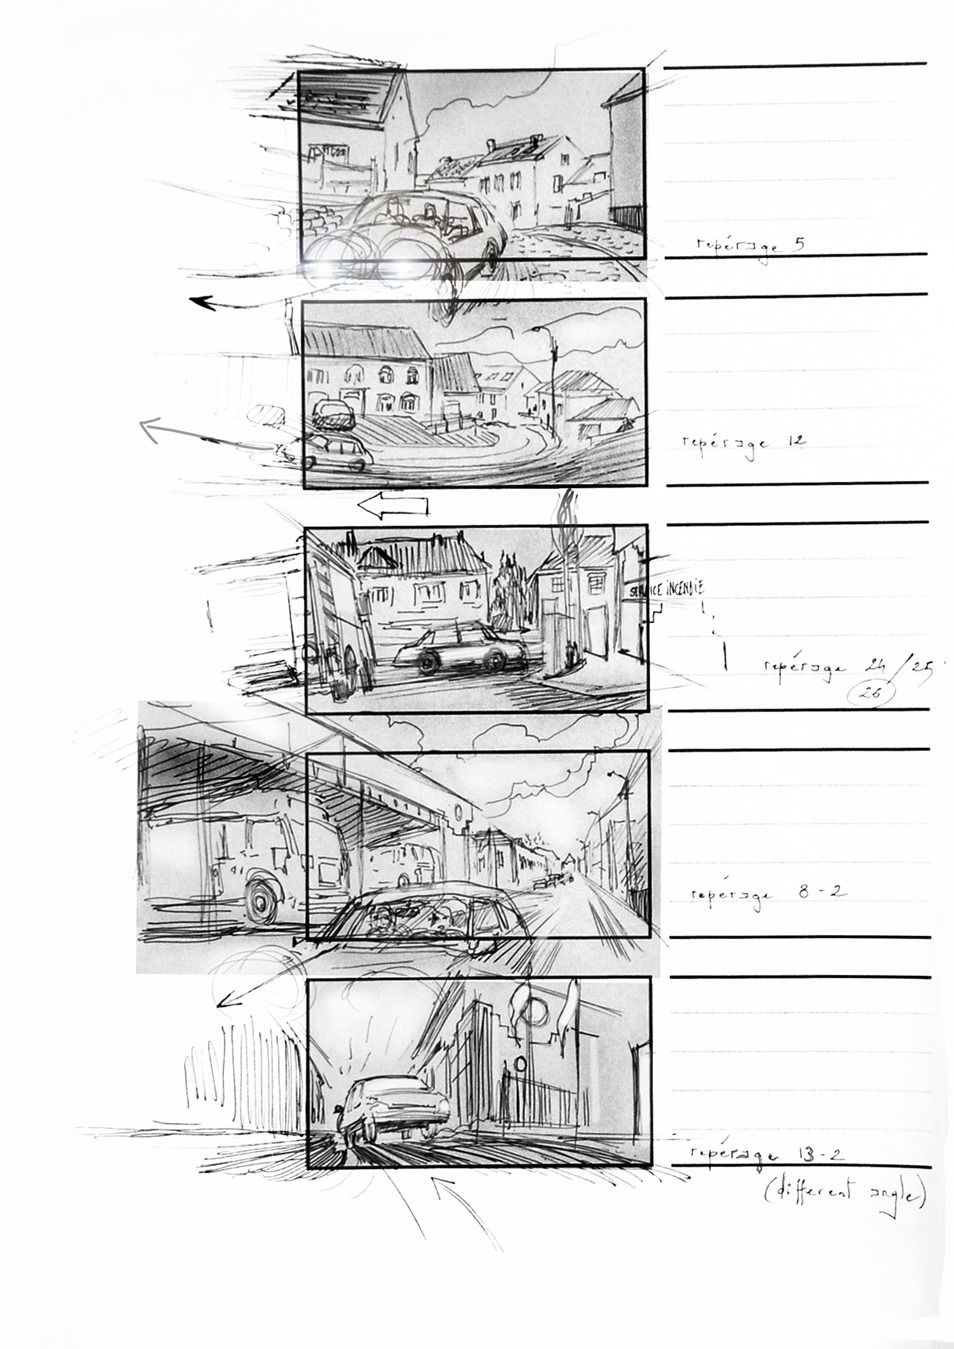 repérage 5
repérage 12
SERVICE INCENDIE
repérage 24 / 25
26
repérage 8-2
repérage 13-2
(different angle)